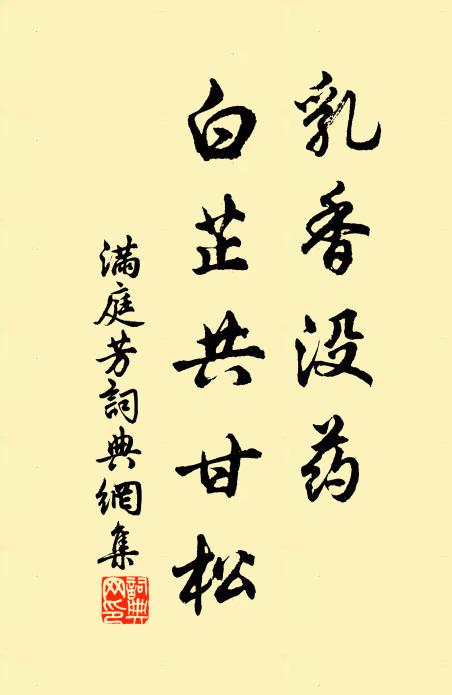 乳香没药
白芷共甘松
满庭芳詞典網集
詞典网印